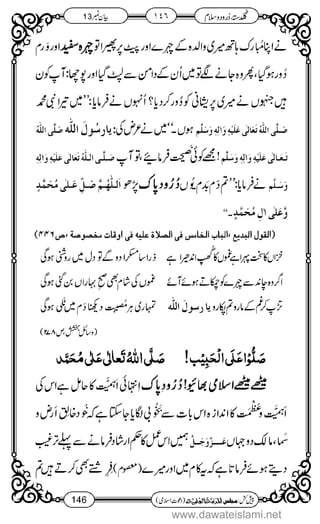 بیان نمبر 13 ١٤٦ گلدستۂ دُرود و سلام
اپنا مُبارک ہاتھ میری والدہ کے چہرے اور پیٹ پر پھیرا تو چہرہ سفید اور وَرَم
دُور ہو گیا، پھر وہ جانے لگے تو میں اُن کے دامن سے لپٹ گیا اور پوچھا: آپ کون
ہیں جنہوں نے میری پریشانی کو دُور کر دیا؟ اُنہوں نے فرمایا: ’’میں تیرا نبی محمد
صَلَّی اللّٰہُ تَعَالٰی عَلَیْہِ وَاٰلِہٖ وَسَلَّمَ ہوں۔‘‘ میں نے عرض کی: یَارسولَ اللّٰہ صَلَّی اللّٰہُ
تَعَالٰی عَلَیْہِ وَاٰلِہٖ وَسَلَّمَ! مجھے کوئی نصیحت فرمائیے، تو آپ صَلَّی اللّٰہُ تَعَالٰی عَلَیْہِ وَاٰلِہٖ
وَسَلَّمَ نے فرمایا: ’’تم دَم بَدَم یُوں دُرُودِ پاک پڑھو اَللّٰہُمَّ صَلِّ عَلٰی مُحَمَّدٍ
وَّعَلٰی اٰلِ مُحَمَّدٍ۔‘‘
(القول البدیع ،الباب الخامس فی الصلاة علیه فی اوقات مخصوصة ،ص٤٤٦)
ذرا سا مسکرا دو گے تو دل میں روشنی ہو گی
غموں کی شام بھی صبحِ بہاراں بن گئی ہو گی
یارسولَ اللّٰہ تمہاری ہر مصیبت دیکھنا دَم میں ٹلی ہو گی
صَلُّوْا عَلَی الْحَبِیْب! صَلَّی اللّٰہُ تَعَالٰی عَلٰی مُحَمَّد
میٹھے میٹھے اسلامی بھائیو! دُرُودِ پاک اِنتہائی اَہمیَّت کا حامل ہے اس کی
اَہمیَّت و عَظَمت کا اندازہ اس بات سے بخوبی لگایا جا سکتا ہے کہ خود خالقِ اَرْض و
سَما، مالکِ دوجہاں عَزَّوَجَلَّ ہمیں اس عمل کا حکم ارشاد فرمانے سے پہلے ترغیب
دیتے ہوئے فرماتا ہے کہ یہ کام میں اور میرے (معصوم) فِرِشتے بھی کرتے ہیں تم
پیش کش: مجلس المدینۃ العلمیۃ (دعوتِ اسلامی) 146
www.dawateislami.net